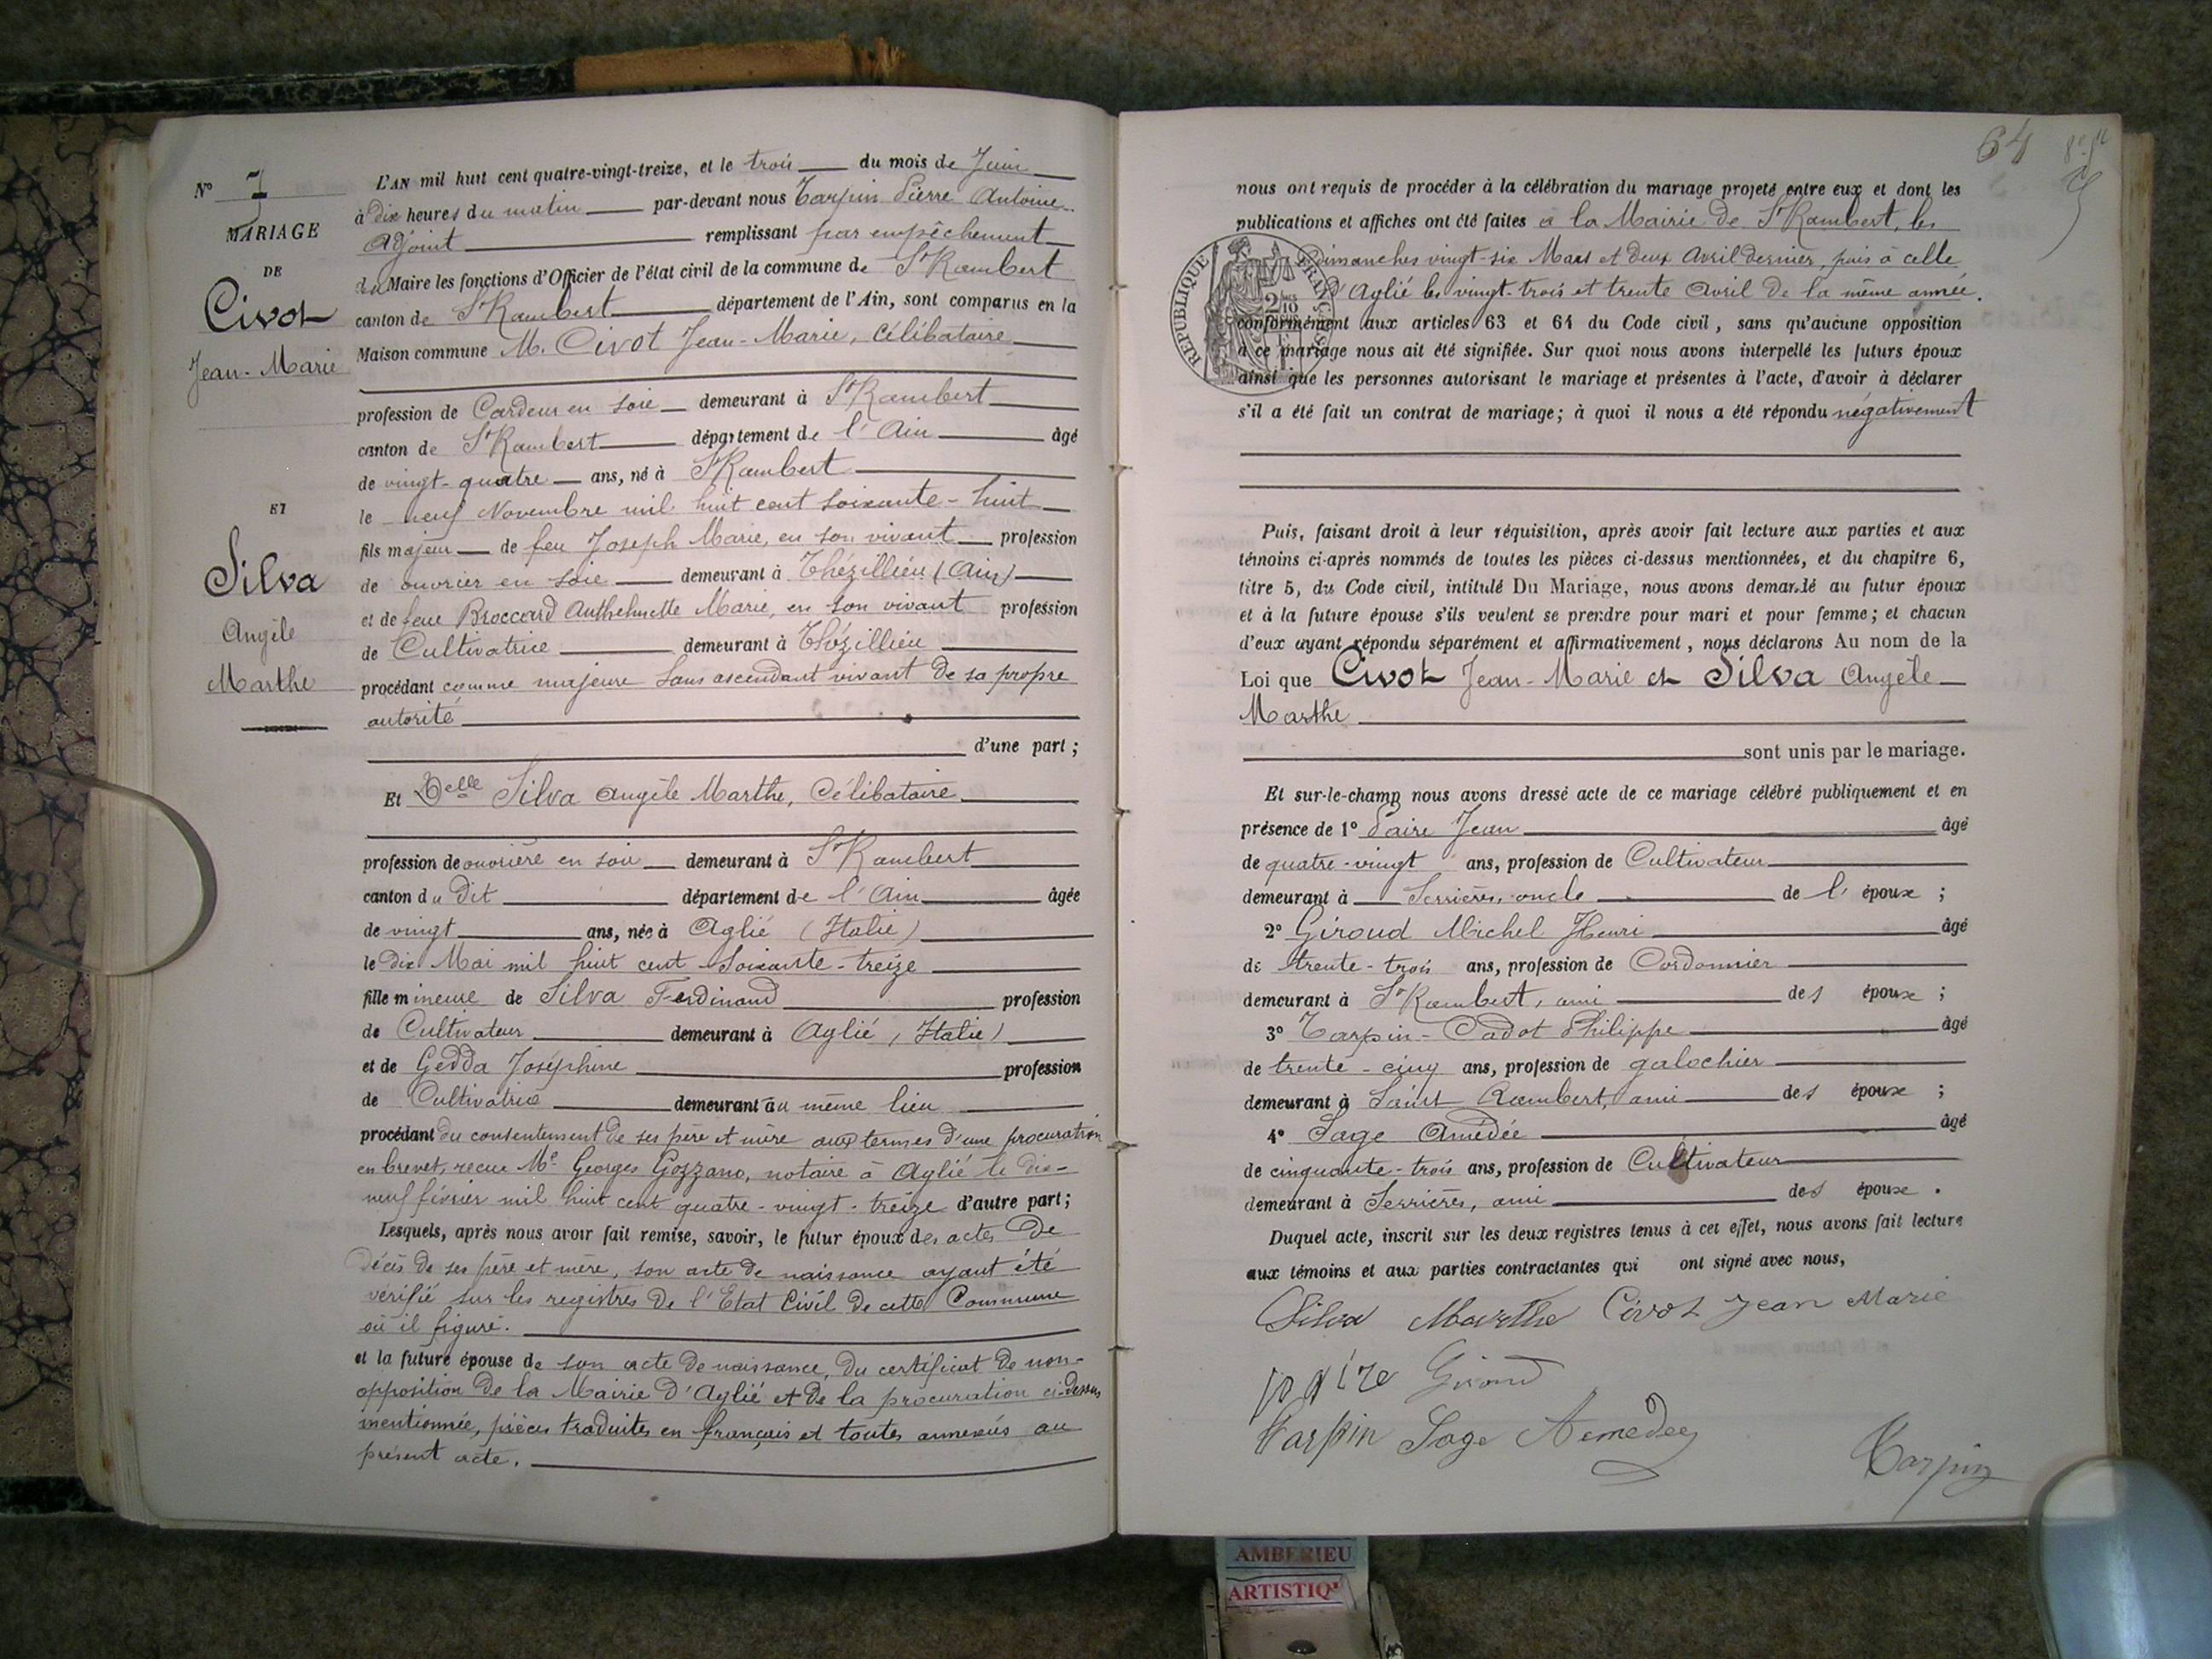 N° 7
MARIAGE
DE
Civot
Jean-Marie
ET
Silva
Angèle
Marthe
L'AN mil huit cent quatre-vingt-treize, et le trois du mois de Juin
à dix heures du matin par-devant nous Tarpin Pierre Antoine
Adjoint remplissant par empêchement
du Maire les fonctions d'Officier de l'état civil de la commune de St Rambert
canton de St Rambert département de l'Ain, sont comparus en la
Maison commune M. Civot Jean-Marie, Célibataire
profession de Cardeur en soie demeurant à St Rambert
canton de St Rambert département de l'Ain âgé
de vingt-quatre ans, né à St Rambert
le neuf Novembre mil huit cent soixante-huit
fils majeur de feu Joseph Marie, en son vivant profession
de ouvrier en soie demeurant à Thézillieu (Ain)
et de feue Broccard Anthelmette Marie, en son vivant profession
de Cultivatrice demeurant à Thézillieu
procédant comme majeure sans ascendant vivant de sa propre
autorité
d'une part ;
Et Delle Silva Angèle Marthe, Célibataire
profession de ouvrière en soie demeurant à St Rambert
canton du dit département de l'Ain âgée
de vingt ans, née à Aglié (Italie)
le dix Mai mil huit cent soixante-treize
fille mineure de Silva Ferdinand profession
de Cultivateur demeurant à Aglié (Italie)
et de Gedda Joséphine profession
de Cultivatrice demeurant au même lieu
procédant du consentement de ses père et mère aux termes d'une procuration
en brevet, reçue Me Georges Gozzano, notaire à Aglié le dix-
neuf février mil huit cent quatre-vingt-treize d'autre part ;
Lesquels, après nous avoir fait remise, savoir, le futur époux des actes de
décès de ses père et mère, son acte de naissance ayant été
vérifié sur les registres de l'Etat Civil de cette Commune
où il figure.
et la future épouse de son acte de naissance, du certificat de non-
opposition de la Mairie d'Aglié et de la procuration ci-dessus
mentionnée, pièces traduites en français et toutes annexées au
présent acte.
64
nous ont requis de procéder à la célébration du mariage projeté entre eux et dont les
publications et affiches ont été faites à la Mairie de St Rambert, les
Dimanches vingt-six Mars et deux Avril dernier, puis à celle
d'Aglié les vingt-trois et trente Avril de la même année.
RÉPUBLIQUE FRANÇAISE
conformément aux articles 63 et 64 du Code civil, sans qu'aucune opposition
à ce mariage nous ait été signifiée. Sur quoi nous avons interpellé les futurs époux
ainsi que les personnes autorisant le mariage et présentes à l'acte, d'avoir à déclarer
s'il a été fait un contrat de mariage ; à quoi il nous a été répondu négativement
Puis, faisant droit à leur réquisition, après avoir fait lecture aux parties et aux
témoins ci-après nommés de toutes les pièces ci-dessus mentionnées, et du chapitre 6,
titre 5, du Code civil, intitulé Du Mariage, nous avons demandé au futur époux
et à la future épouse s'ils veulent se prendre pour mari et pour femme ; et chacun
d'eux ayant répondu séparément et affirmativement, nous déclarons Au nom de la
Loi que Civot Jean-Marie et Silva Angèle
Marthe
sont unis par le mariage.
Et sur-le-champ nous avons dressé acte de ce mariage célébré publiquement et en
présence de 1° Paire Jean âgé
de quatre-vingt ans, profession de Cultivateur
demeurant à Serrières, oncle de l'époux ;
2° Giroud Michel Henri âgé
de trente-trois ans, profession de Cordonnier
demeurant à St Rambert, ami des époux ;
3° Tarpin-Cadot Philippe âgé
de trente-cinq ans, profession de galochier
demeurant à Saint Rambert, ami des époux ;
4° Sage Amédée âgé
de cinquante-trois ans, profession de Cultivateur
demeurant à Serrières, ami des époux.
Duquel acte, inscrit sur les deux registres tenus à cet effet, nous avons fait lecture
aux témoins et aux parties contractantes qui ont signé avec nous,
Silva Marthe Civot Jean Marie
paire Giroud
Tarpin Sage Amedee
Tarpin
AMBERIEU
ARTISTIQ